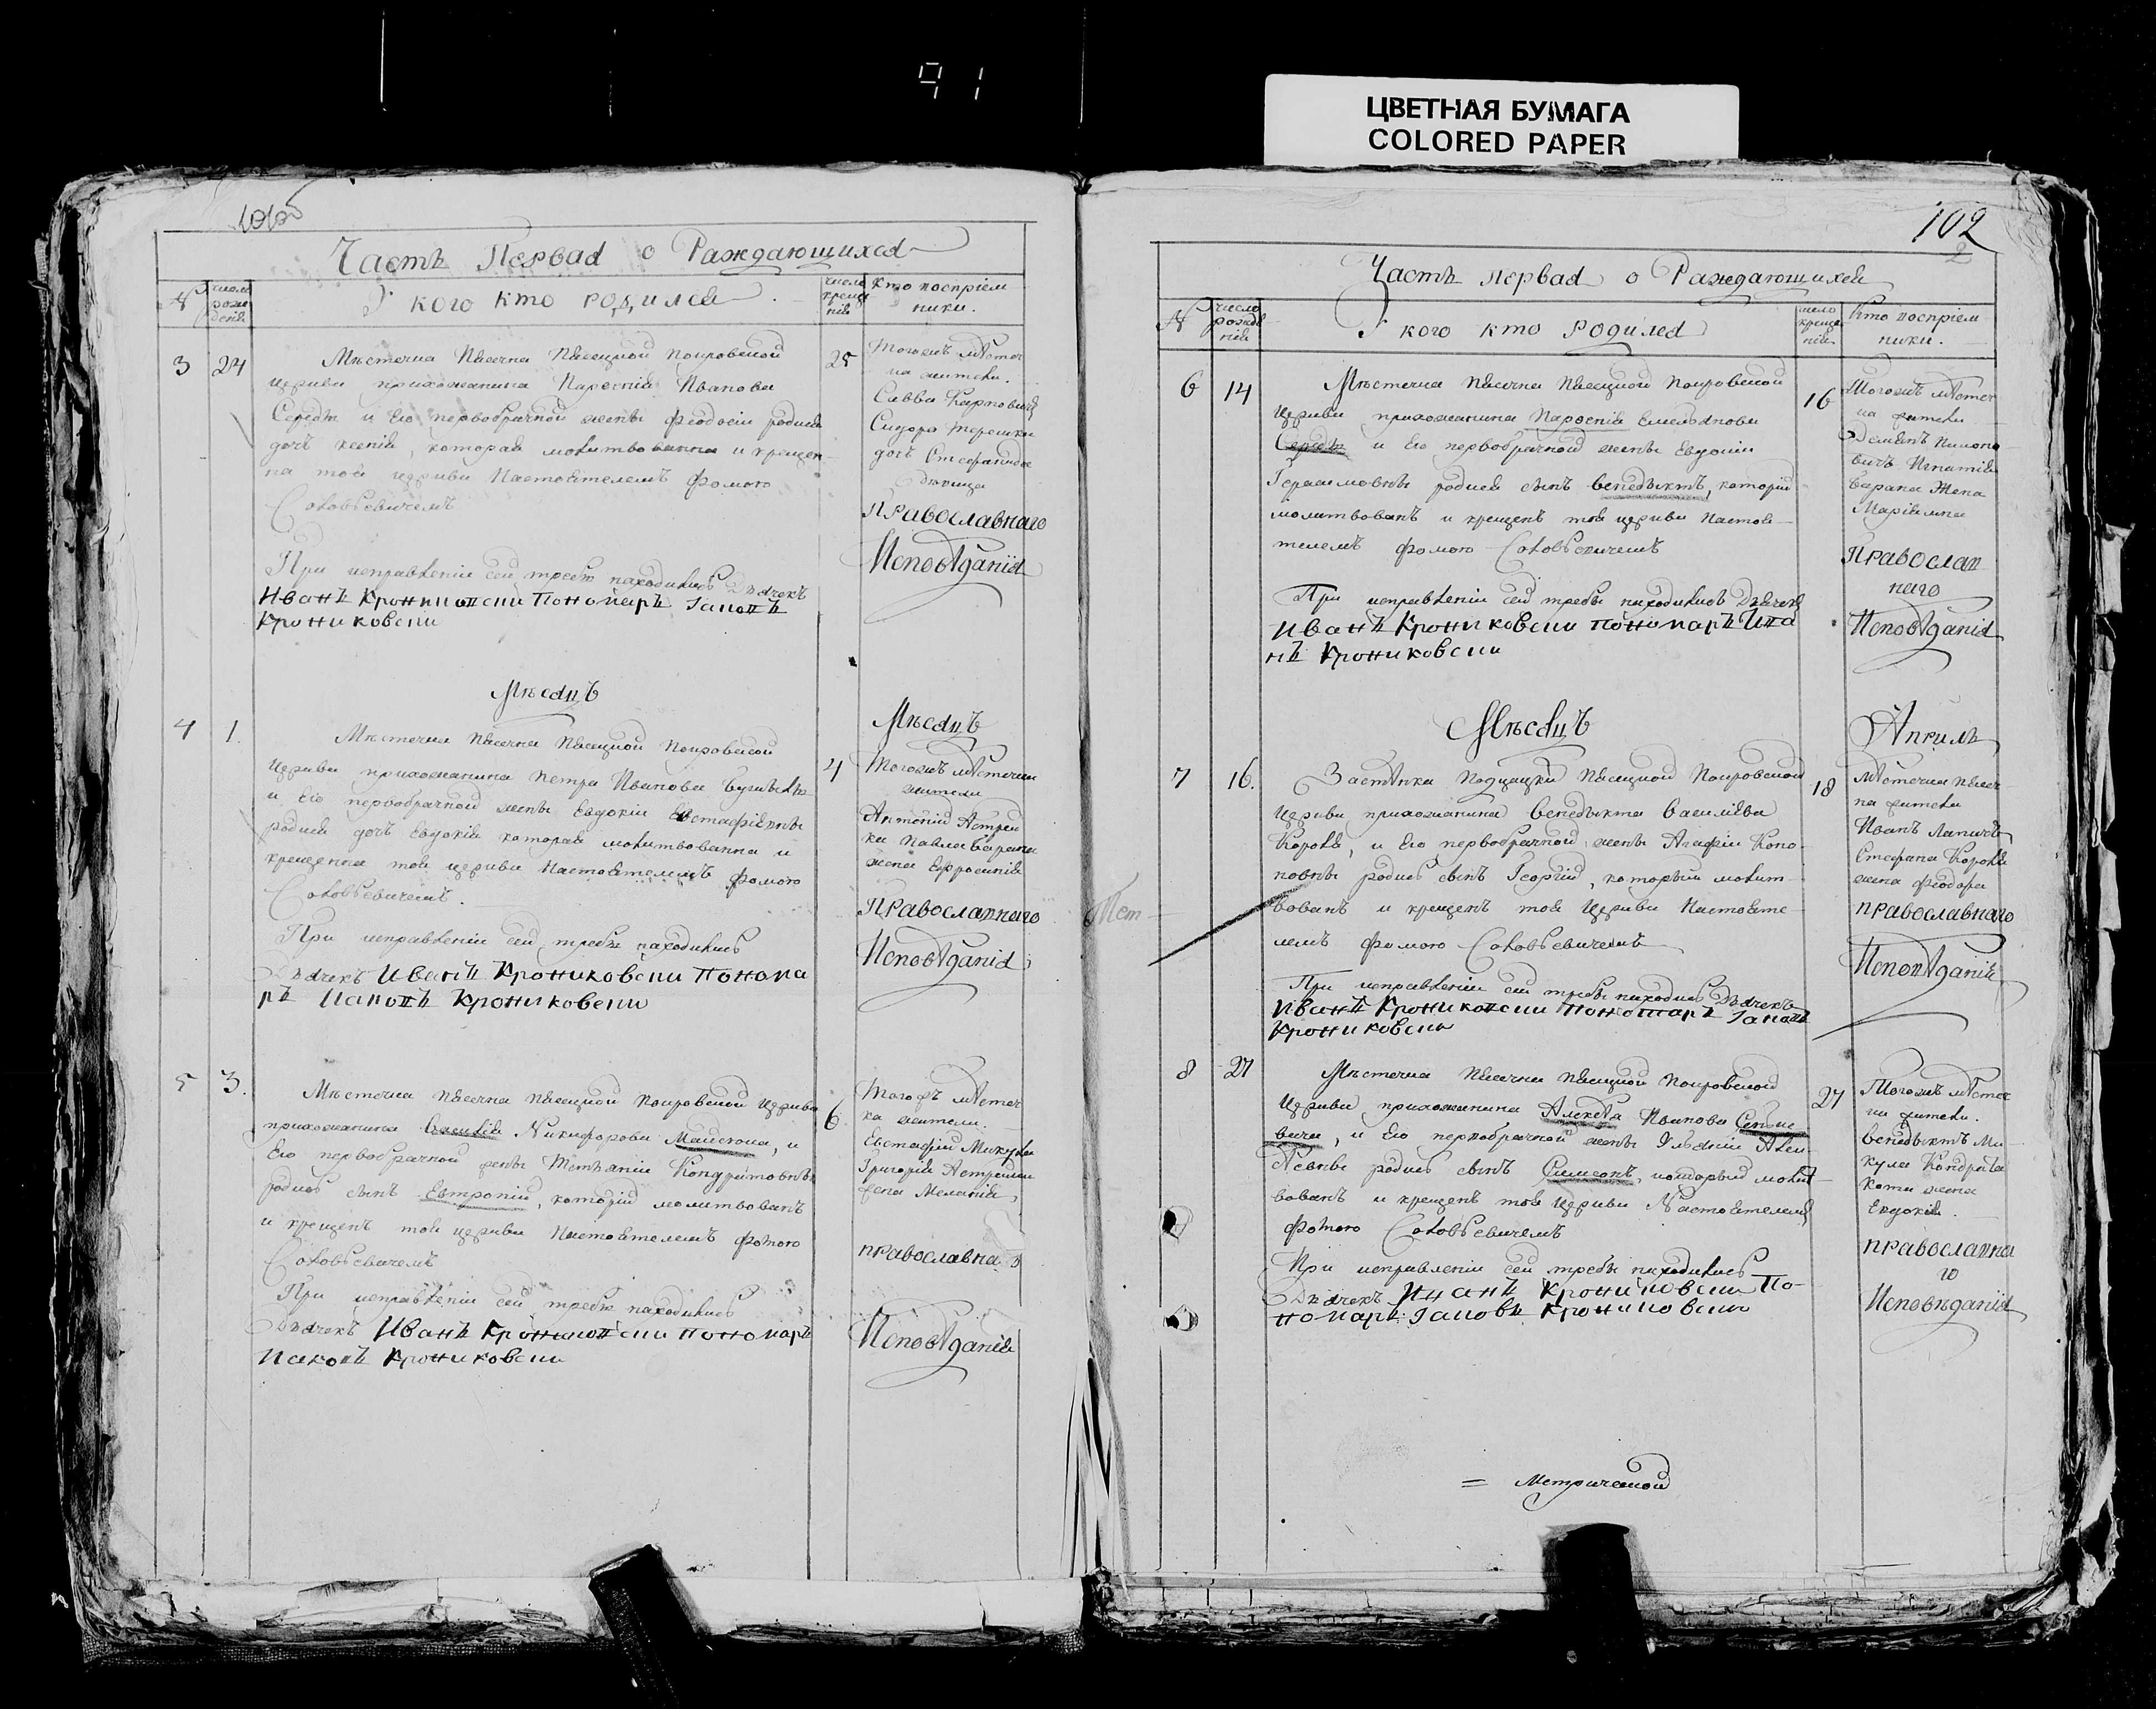 91
ЦВЕТНАЯ БУМАГА
COLORED PAPER
Часть Первая о Раждающихся
№
число рожденія
У кого кто родился
число крещенія
Кто восприемники.
3
24
Мѣстечка
Покровской
церкви прихожанина Парѳенія Иванова
Середы и его первобрачной жены Феодосіи родися
дочь Ксенія, которая молитвованна и крещен-
на той церкви Настоятелемъ Фомою
Соловьевичемъ
При исправленіи сей требы находились Дьячекъ
Иванъ Крониковски Пономаръ Іаковъ
Крониковски
25
Тогожъ мѣстеч
ка жители.
Савва Карповичъ
Сидора Терешки
дочь Стефанида
дѣвица
Православнаго
Исповѣданія
Мѣсяцъ
4
1.
Мѣстечка
Покровской
церкви прихожанина Петра Иванова
и его первобрачной жены Евдокіи Евстафіевны
родися дочь Евдокія которая молитвованна и
крещенна той церкви Настоятелемъ Фомою
Соловьевичемъ.
При исправленіи сей требы находились
Дьячекъ Иванъ Крониковски Понома
ръ Иаковъ Крониковски
Мѣсяцъ
4
Тогожъ мѣстечка
жители
Антоній Астрей
ка Павла Барана
жена Ефросинія
Православнаго
Исповѣданія
5
3.
Мѣстечка
Покровской церкви
прихожанина Василія Никифорова
и
Его первобрачной жены Тетяніи Кондратовны
родись сынъ Евтропій, которій молитвованъ
и крещенъ той церкви Настоятелемъ Фомою
Соловьевичемъ
При исправленіи сей требы находились
Дьячекъ Иванъ Крониковски Пономаръ
Иаковъ Крониковски
6
Тогожъ мѣстеч
ка жители.
Евстафій Микула
Григорія Астрейки
жена Меланія
Православна
Исповѣданія
102
2
Часть первая о Раждающихся
№
число рожденія
У кого кто родился
число крещенія
Кто восприемники.
6
14
Мѣстечка
Покровской
Церкви прихожанина Парѳенія Емельянова
Середы и его первобрачной жены Евдокіи
Герасимовны родися сынъ Венедыктъ, которій
молитвованъ и крещенъ той церкви Настоя-
телемъ Фомою Соловьевичемъ
При исправленіи сей требы находились Дьячекъ
Иванъ Крониковски Пономаръ
Крониковски
16
Тогожъ мѣстеч
ка жители
вичъ Игнатія
Барана Жена
Православ
наго
Исповѣданія
Мѣсяцъ
Апрыль
7
16.
Застѣнка
Покровской
Церкви прихожанина Венедыкта Василіева
Короля, и Его первобрачной жены Агафіи Коно-
новны родись сынъ Георгій, который молит-
вованъ и крещенъ той Церкви Настояте-
лемъ Фомою Соловьевичемъ
При исправленіи сей требы находись Дьячекъ
Иванъ Крониковски Пономаръ Іаковъ
Крониковски
18
Мѣстечка
жители
Иванъ
Стефана Короля
жена Феодора
Православнаго
Исповѣданія
8
27
Мѣстечка
Покровской
Церкви прихожанина Алексѣя Иванова
и Его первобрачной жены
родись сынъ Симеонъ, который молит
вованъ и крещенъ той Церкви Настоятелемъ
Фомою Соловьевичемъ
При исправленіи сей требы находились
Дьячекъ Иванъ Крониковски По-
номаръ Іаковъ Крониковски
27
Тогожъ мѣстеч
ка жители.
Венедыктъ Ми
кула Кондрата
жена
Евдокія.
Православна
го
Исповѣданія
= Метрической